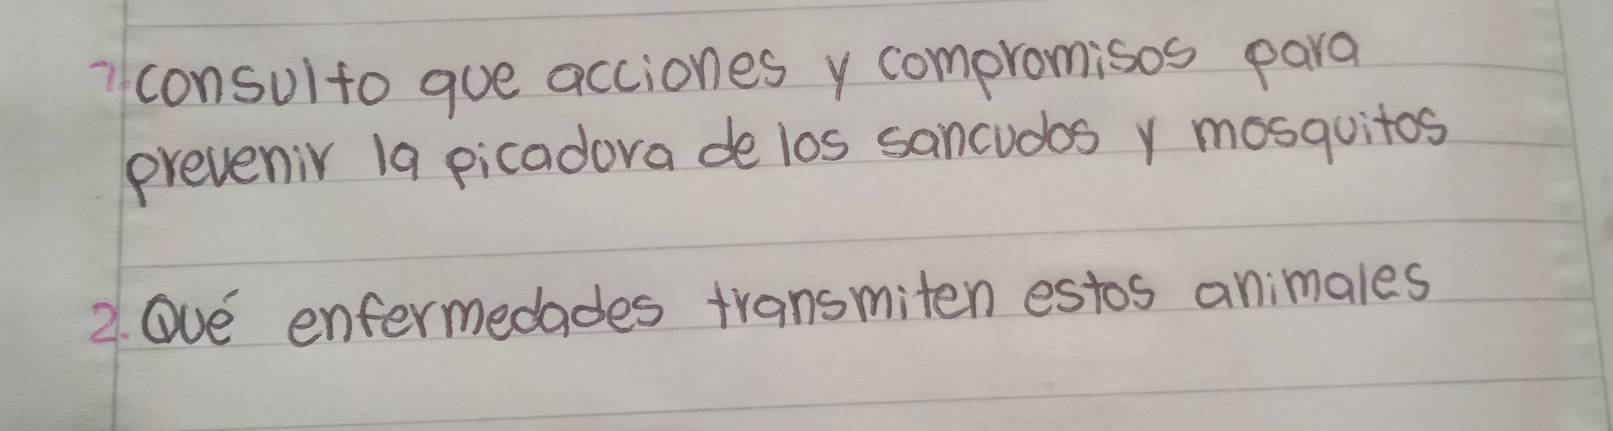 1. consulto que acciones y compromisos para
prevenir la picadora de los sancudos y mosquitos
2. Qué enfermedades transmiten estos animales